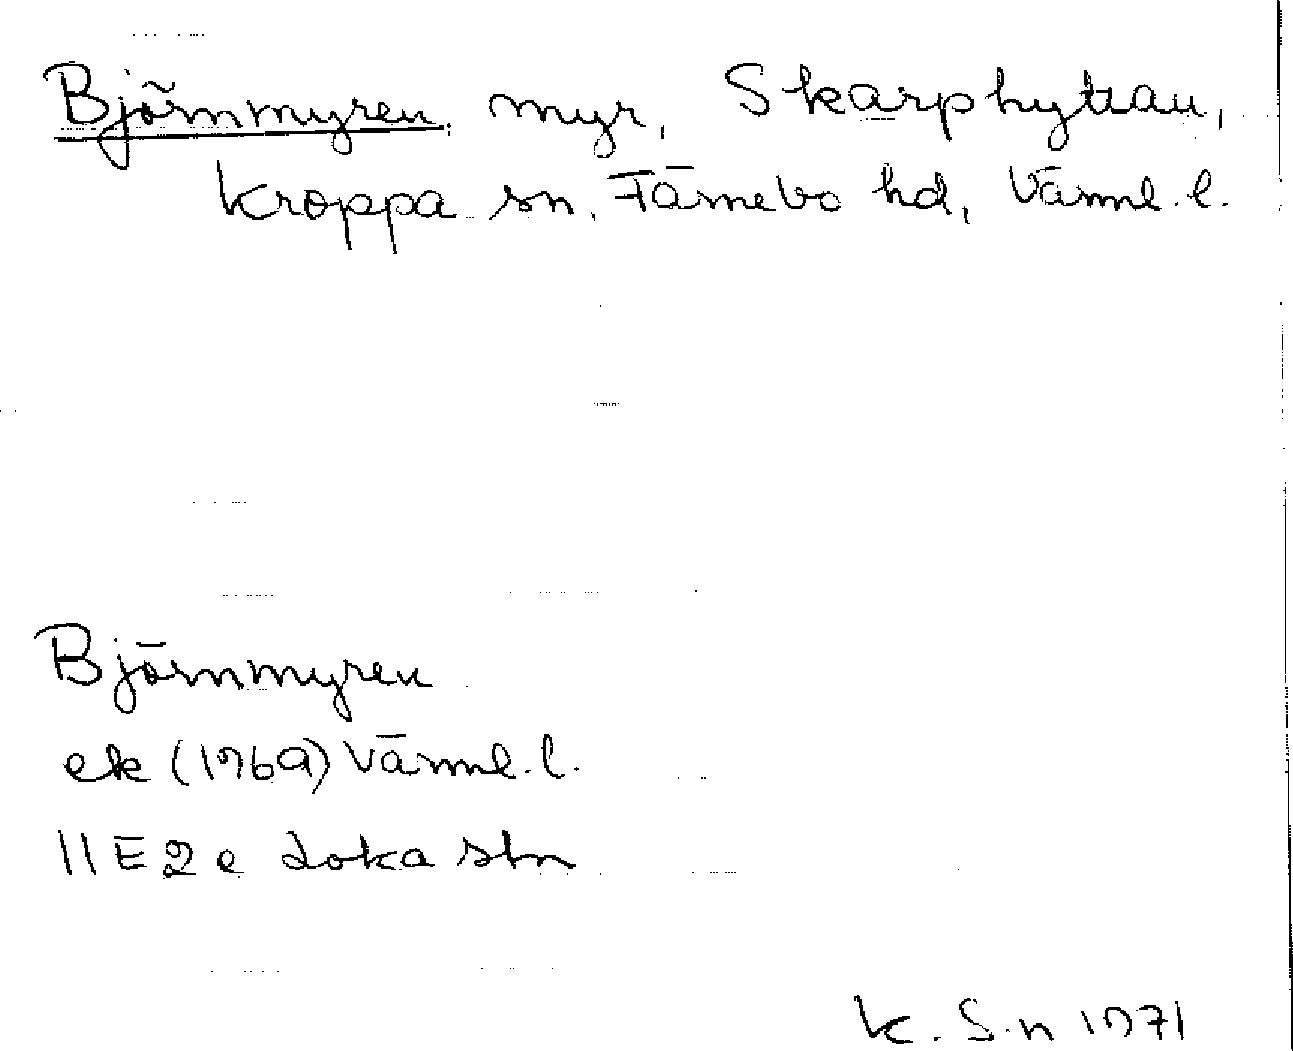 Björnmyren, myr, Skarphyttan,
Kroppa sn, Färnebo hd, Värml. l.
Björnmyren
ek (1969) Värml. l.
11E2e Loka stn
K. S-n 1971